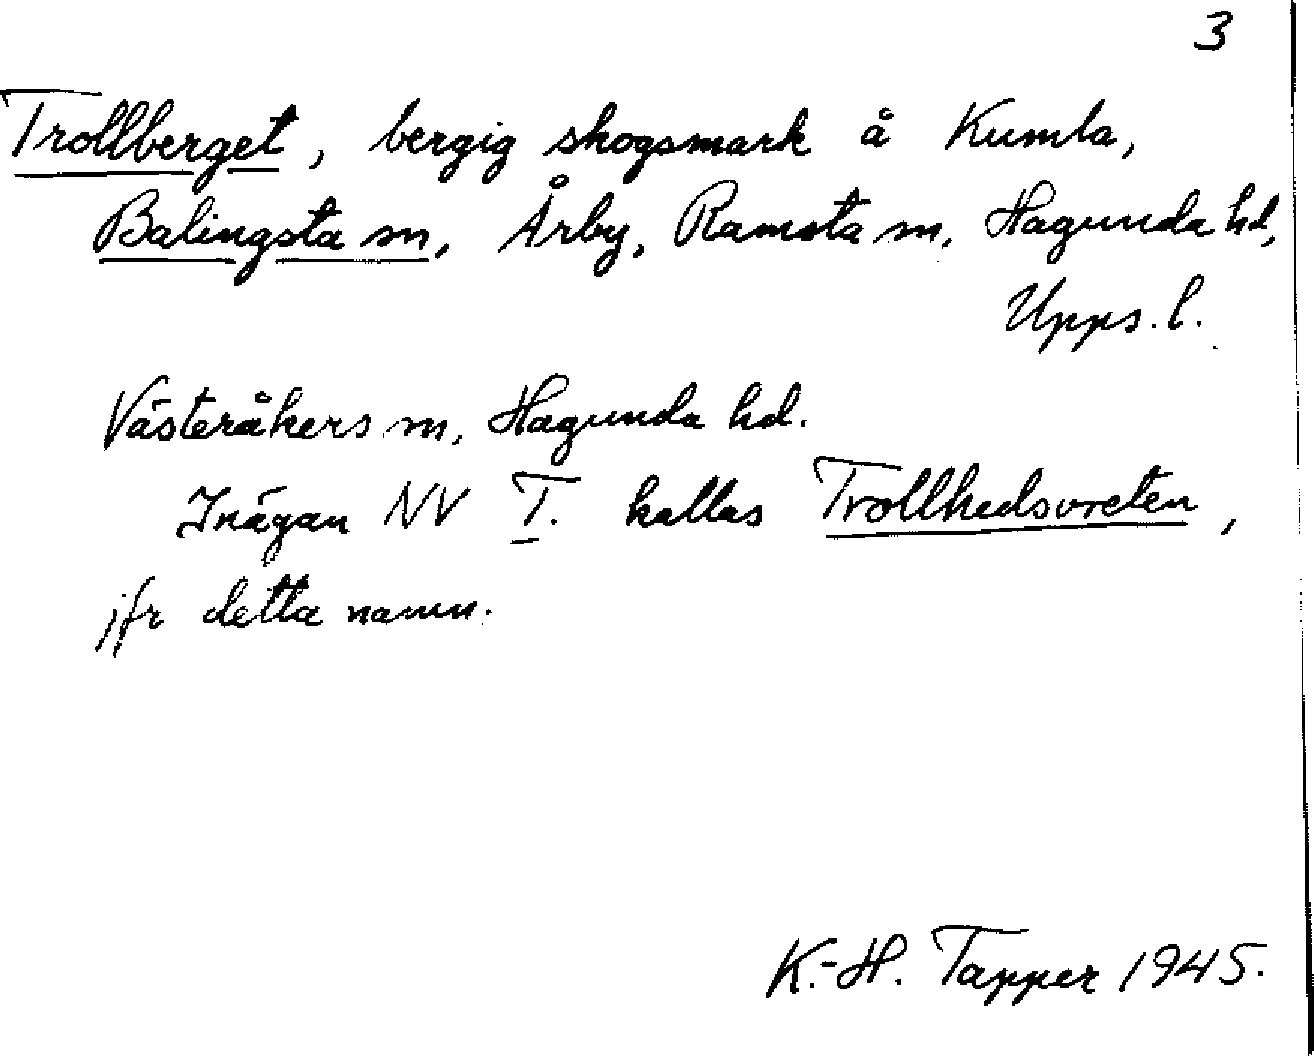 3
Trollberget, bergig skogsmark å Kumla,
Balingsta sn, Årby, Ramsta sn, Hagunda hd,
Upps. l.
Västeråkers sn, Hagunda hd.
Inägan NV T. kallas Trollhedsvreten,
jfr detta namn.
K.-H. Tapper 1945.